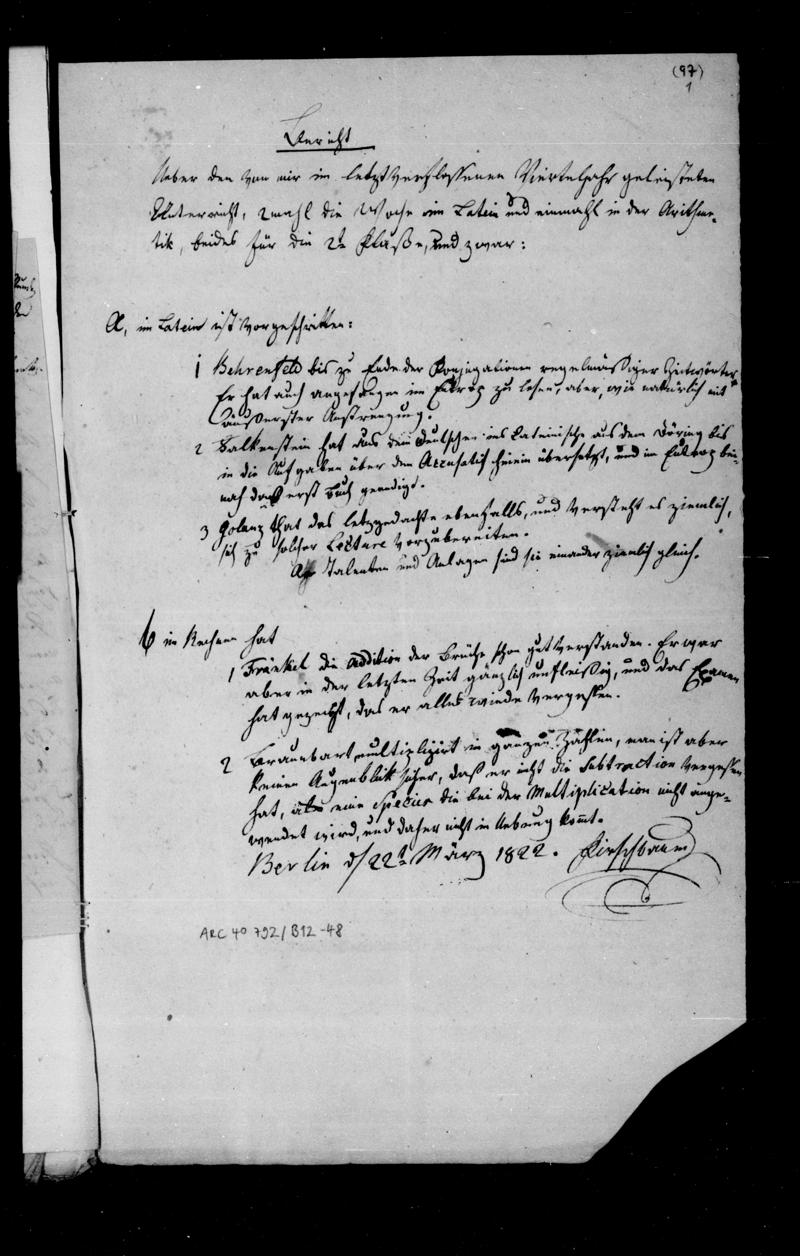 (97)
1
Bericht
Ueber den von mir im letztverflossenen Vierteljahr geleisteten
Unterricht, 2mahl die Woche im Latein und einmahl in der Arithme-
tik, beides für die 2te Klaße, und zwar:
A, im Latein ist vorgeschritten:
1 Behrenfeld bis zu Ende der Konjugationen regelmäßiger Zeitwörter.
Er hat auch angefangen im Eutrop zu lesen, aber, wie natürlich mit
äußerster Anstrengung.
2 Falkenstein hat aus dem Deutschen ins Lateinische aus dem Döring bis
in die Aufgaben über den Accusativ hinein übersetzt, und im Eutrop bei-
nah das erst Buch geendigt.
3 Golanz hat das letzgedachte ebenfalls, und versteht es ziemlich,
sich zu solcher Lecture vorzubereiten.
An Talenten und Anlagen sind sie einander ziemlich gleich.
b im Rechnen hat
1 Fränkel die Addition der Brüche schon gut verstanden. Er war
aber in der letzten Zeit gänzlich unfleißig, und das Examen
hat gezeigt, das er alles wieder vergessen.
2 Braunbart multiplizirt in ganzen Zahlen, man ist aber
keinen Augenblik sicher, daß er nicht die Subtraction vergessen
hat, als eine Species die bei der Multiplication nicht ange-
wendet wird, und daher nicht in Uebung kommt.
Berlin d/ 22t März 1822. Kirschbaum
ARC 4° 792/B12-48